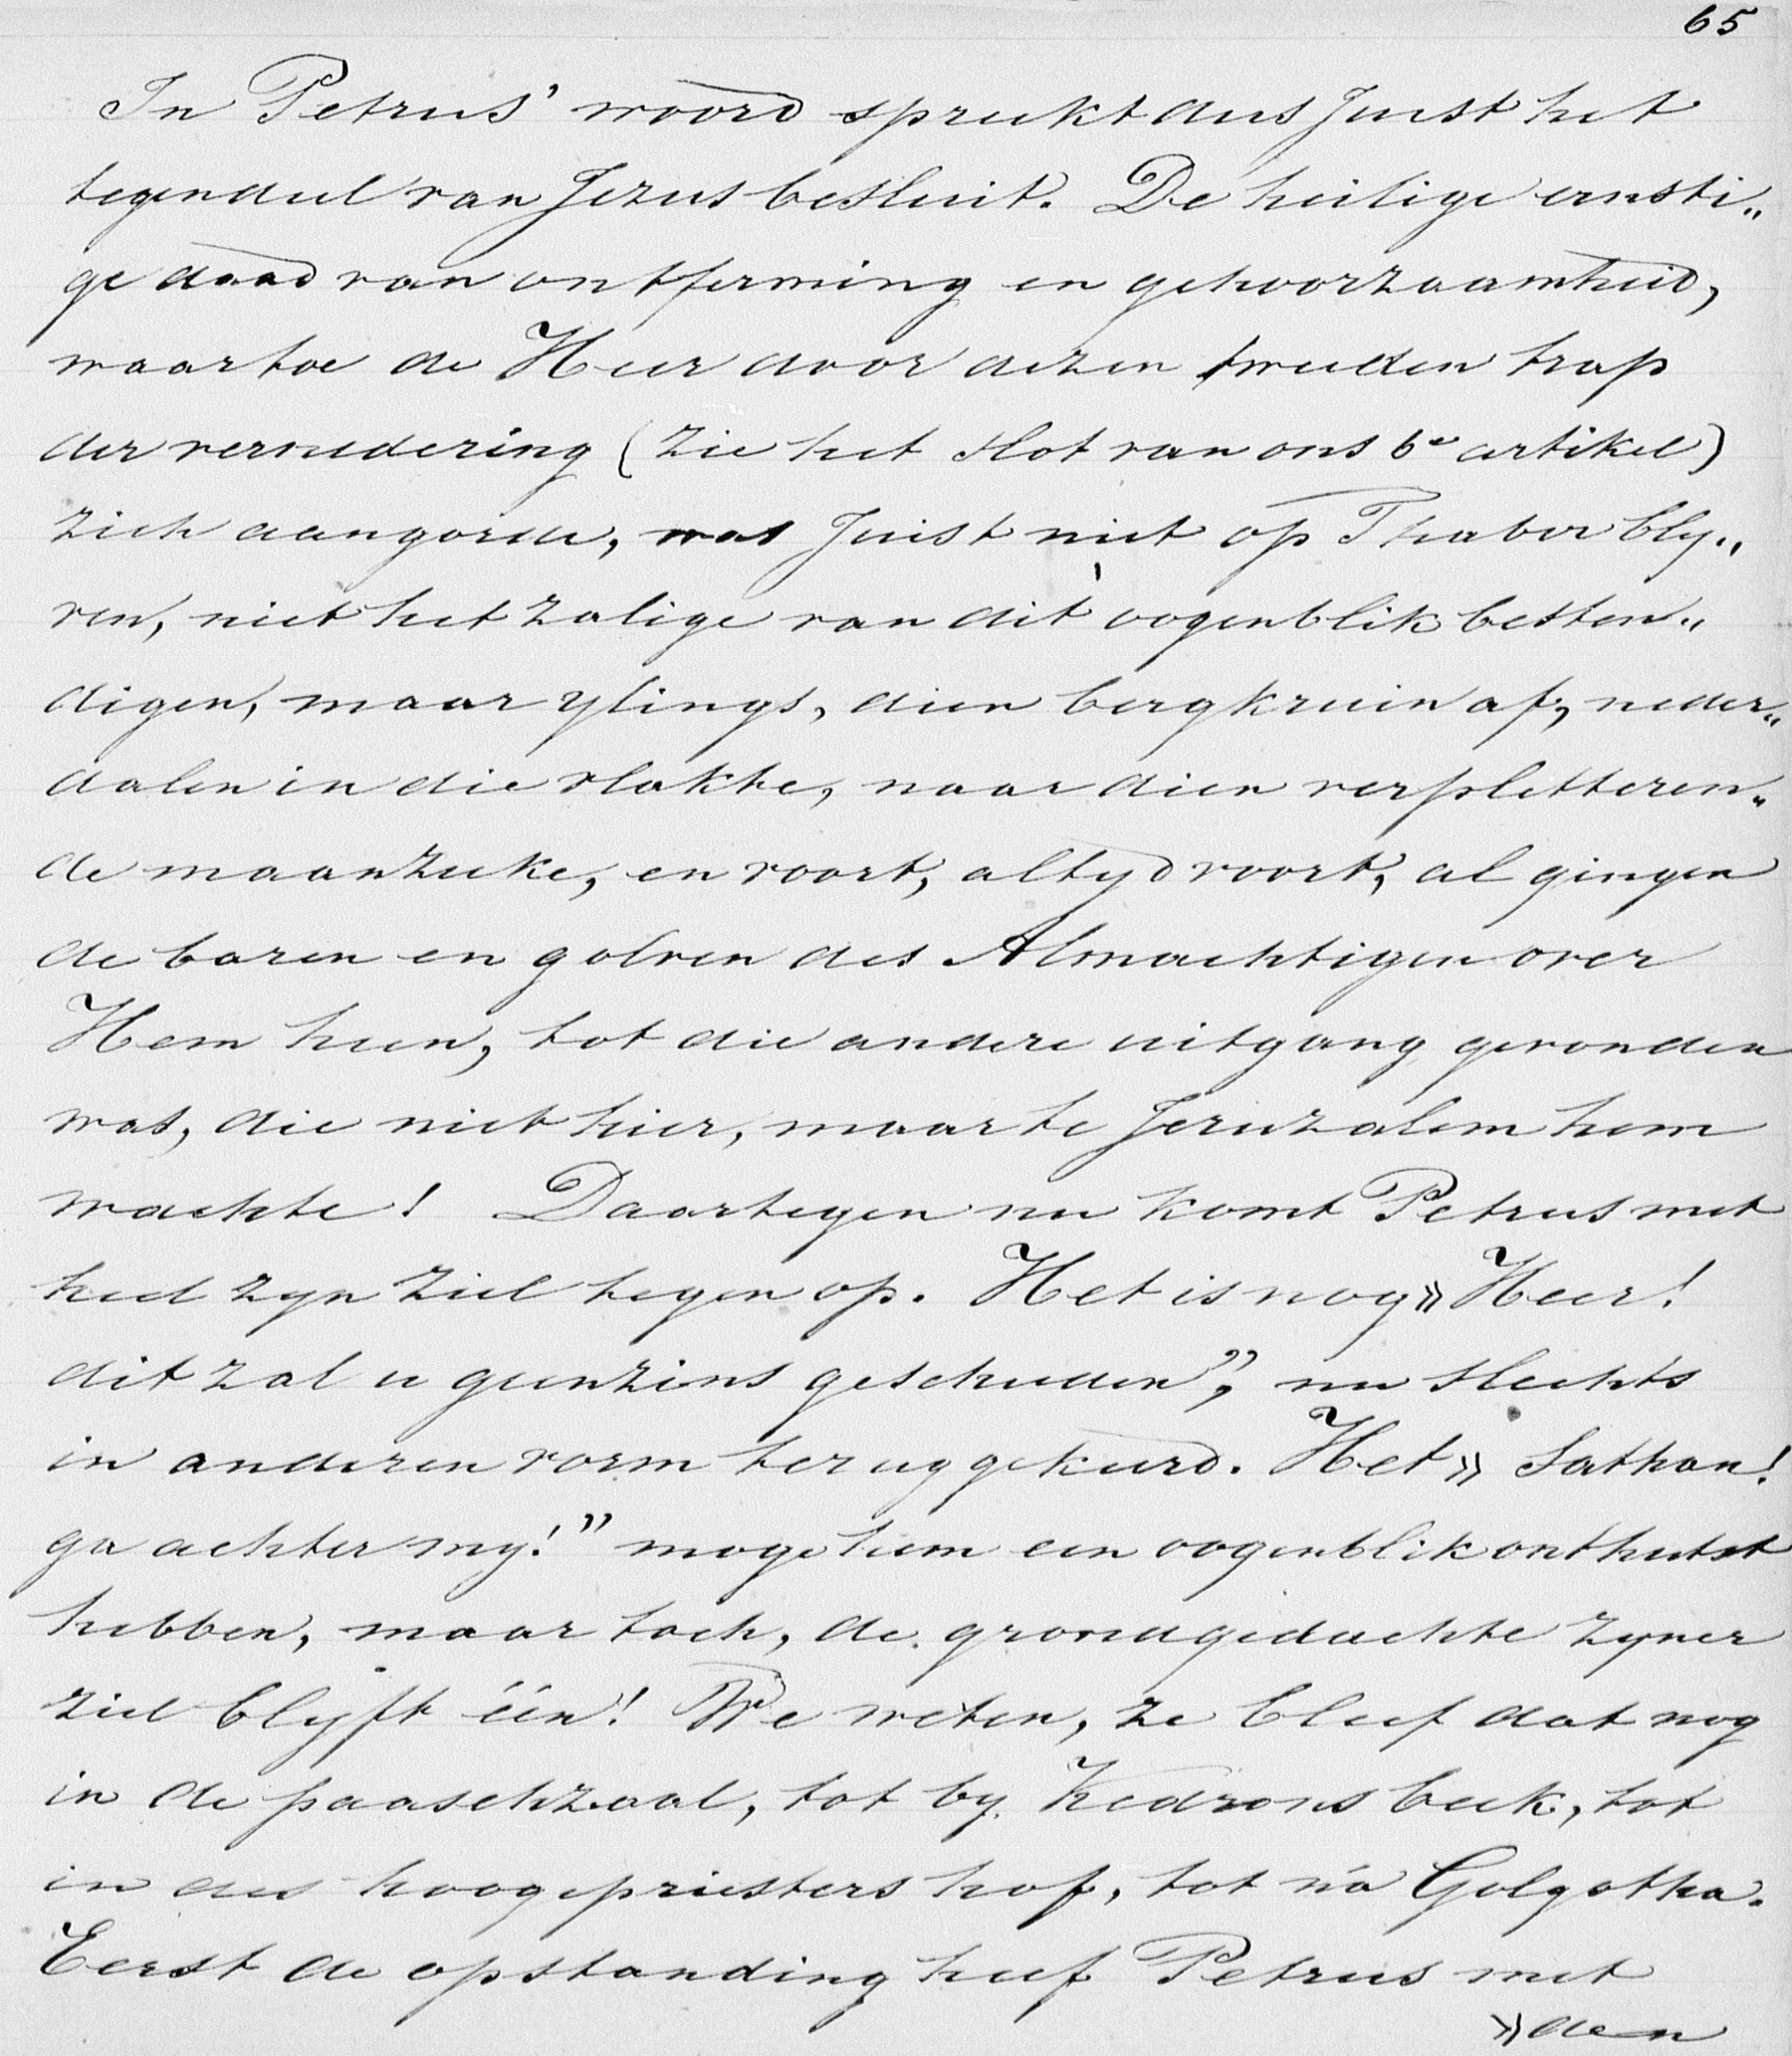 65
In Petrus' woord spreekt dus juist het
tegendeel van Jezus besluit. De heilige ernsti„
ge daad van ontferming en gehoorzaamheid,
waartoe de Heer door dezen tweeden trap
der vernedering (zie het slot van ons 6e artikel)
zich aangorde, was juist niet op Thabor bly„
ven, niet het zalige van dit oogenblik besten„
digen, maar ylings, dien bergkruin af, neder„
dalen in die vlakte, naar dien verpletteren„
de maanzieke, en voort, altyd voort, al gingen
de baren en golven des Almachtigen over
Hem heen, tot die andere uitgang gevonden
was, die niet hier, maar te Jeruzalem hem
wachtte! Daartegen nu komt Petrus met
heel zyn ziel tegen op. Het is nog » Heer!
dit zal u geenzins geschieden”, nu slechts
in anderen vorm teruggekeerd. Het » Sathan!
ga achter my!” moge hem een oogenblik onthutst
hebben, maar toch, de grondgedachte zyner
ziel blyft één! We weten, ze bleef dat nog
in de paaschzaal, tot by Kedrons beek, tot
in des hoogepriesters hof, tot ná Golgotha.
Eerst de opstanding heef Petrus met
» den